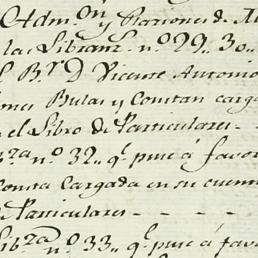 Adm.on y Raciones de
las Libranz.s n.o 29. 30.
B.r D. Vicente Antonio
ones Bulas y Constan carga
n el Libro de Particulares - -
n.o 32. q.e puse á favor
Consta Cargada en su cuenta
de Particulares - - - -
Lib.za n.o 33. q.e puse á favo